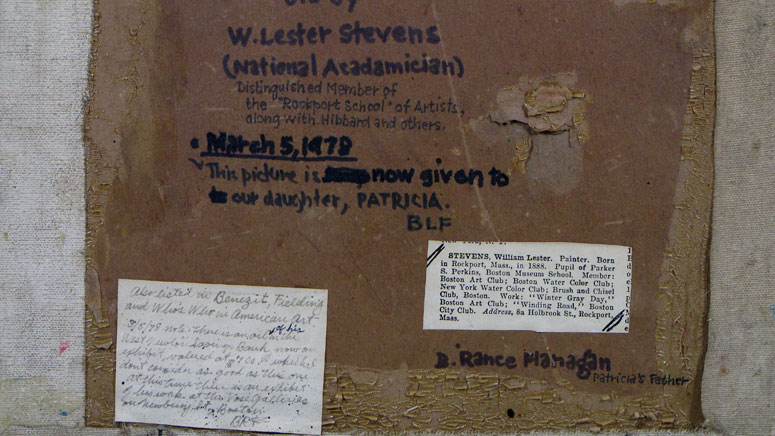 Old by
W. Lester Stevens
(National Acadamician)
Distinguished Member of
the "Rockport School" of Artists,
along with Hibbard and others.
• March 5, 1978
This picture is now given to
our daughter, PATRICIA.
BLF
STEVENS, William Lester. Painter. Born
in Rockport, Mass., in 1888. Pupil of Parker
S. Perkins, Boston Museum School. Member:
Boston Art Club; Boston Water Color Club;
New York Water Color Club; Brush and Chisel
Club, Boston. Work: "Winter Gray Day,"
Boston Art Club; "Winding Road," Boston
City Club. Address, 8a Holbrook St., Rockport,
Mass.
Also listed in Benezit, Fielding
and Who's Who in American Art
3/5/78 N.B. There is an oil of his
now on
exhibit, valued at which I
don't consider as good as this one
at this time there is an exhibit
of his work at the Vose Galleries
on Newbury St. Boston
BLF
B. Rance Managan
Patricia's Father